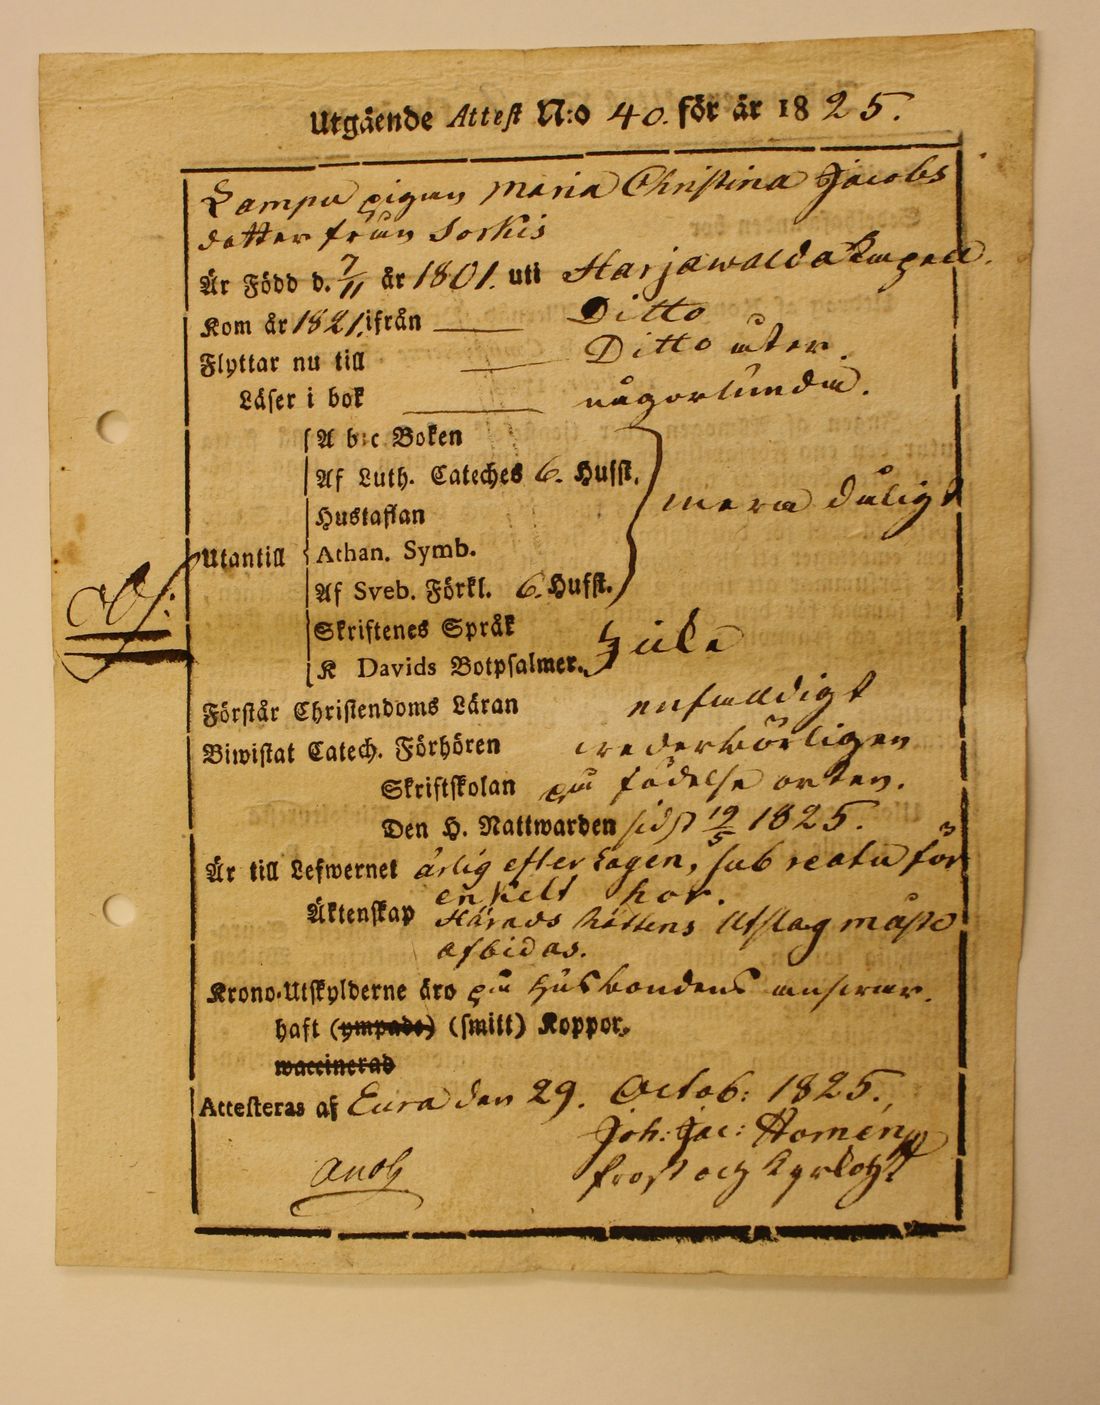 Utgående Attest N:o 40. för år 1825.
pigan Maria Christina Jacobs
dotter från Sorkis
Är Född d. 7/11 år 1801. uti Harjawalda Capell.
Kom år 1821. ifrån Ditto
Flyttar nu till Ditto åter.
Läser i bok någorlunda.
A b:c Boken
Af Luth. Cateches 6. Hufst.
Hustaflan
mera dåligt
Utantill
Athan. Symb.
Af Sveb. Förkl. 6. Hufst.
Skriftenes Språk
K Davids Botpsalmer.
Förstår Christendoms Läran enfaldigt
Biwistat Catech. Förhören wederbörligen
Skriftskolan på födelse orten.
Den H. Nattwarden sidst 19/5 1825.
Är till Lefwernet ärlig efter Lagen, sub reatu för
enkelt hor.
Äktenskap Härads Rättens Utslag måste
afbidas.
Krono-Utskylderne äro på Husbondens answar.
haft (ympade) (smitt) Koppor.
waccinerad
Attesteras af Eura den 29. Octob: 1825.
Joh: Jac: Homén
Prost och Kyrkoh